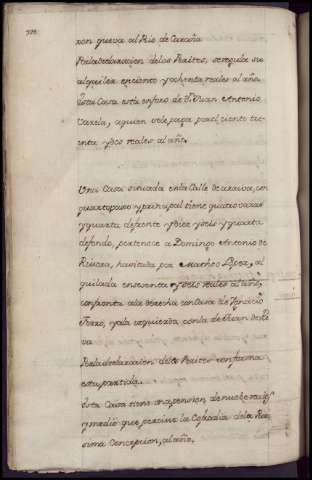 ron nueva al Rio de Caraña
Por la declarazon de los Peritos, se regula su
alquiler en ciento y ochenta reales al año.
Esta Casa esta en foro de Dn Juan Antonio
Varela, a quien se le paga por el ciento tre-
enta y dos reales al año.
Una Casa situada en la Calle de arriva, con
quarto vajo y principal tiene quatro varas
y quarta de frente y diez y seis y quarta
de fondo, pertenece a Domingo Antonio de
havitada por Matheo Lopez, al
quilada en sesenta y seis reales al año,
confronta a la derecha con Casa de Ignacio
Ferro, y a la izquierda con la de Juan de
va
Por la declarazion de los Peritos conforma
esta partida.
Esta Casa tiene una pension de nueve reales
y medio que percive la Cofradia de la Pu-
risima Concepcion, al año.